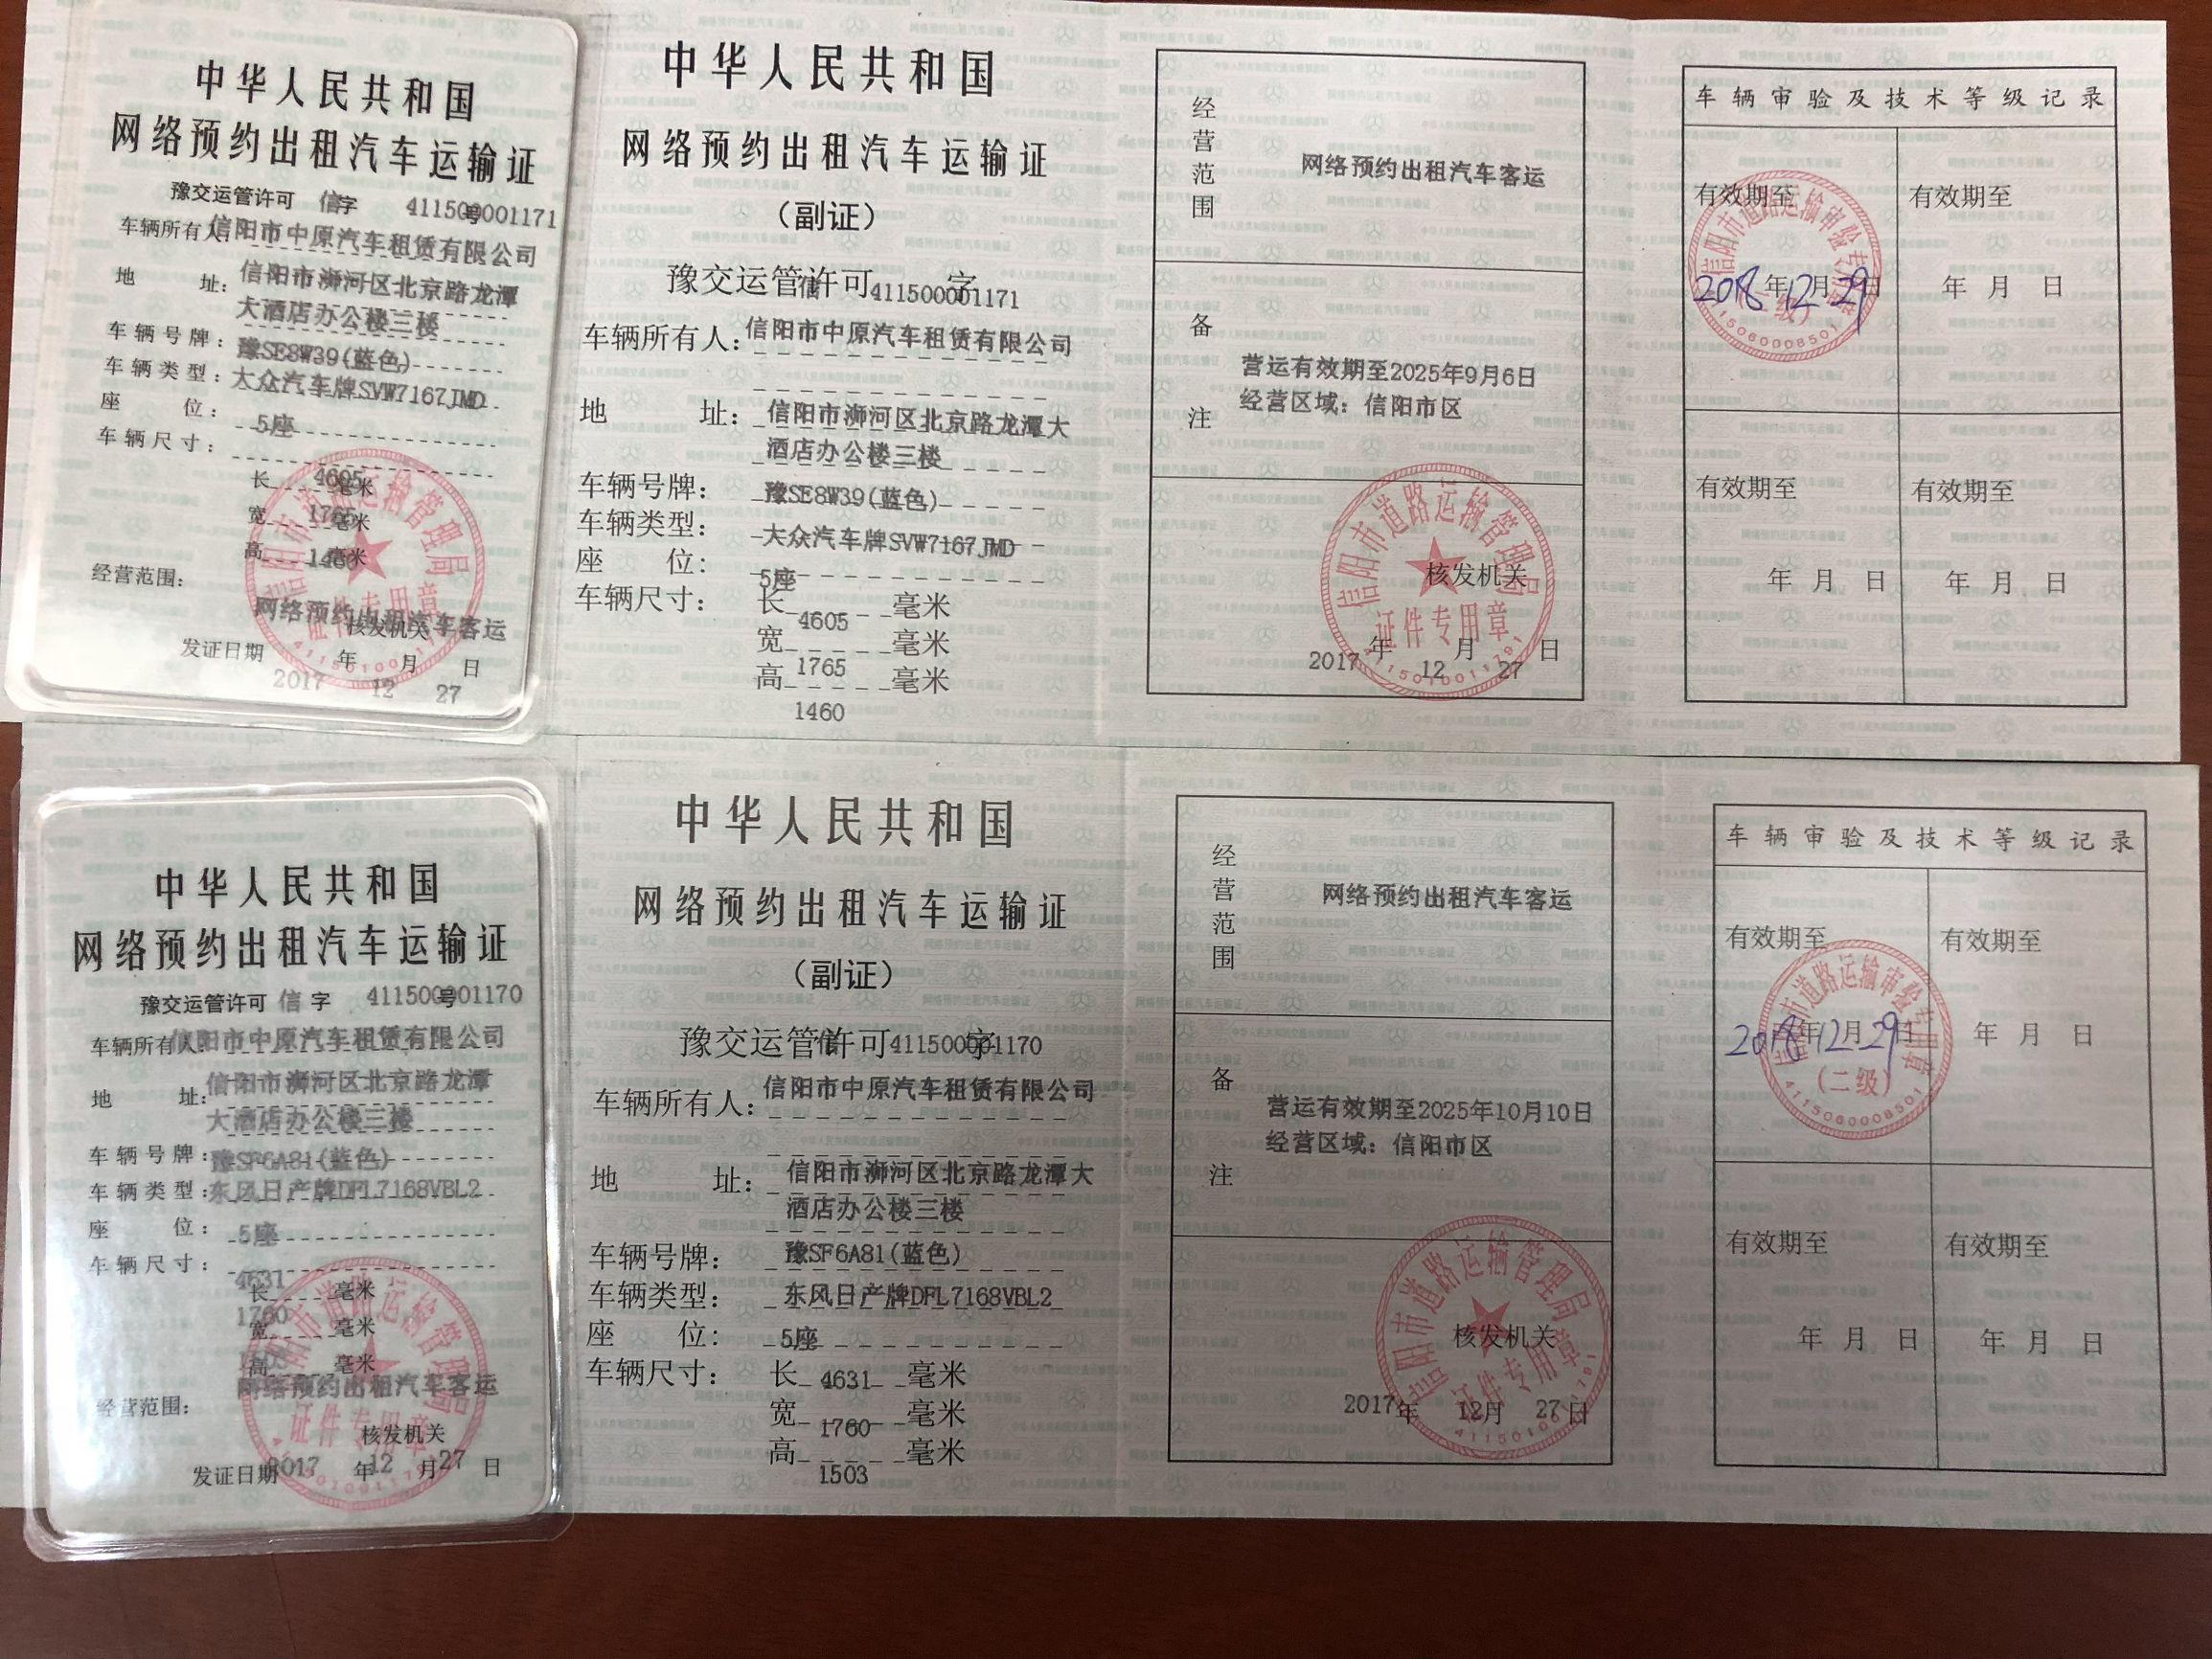 中华人民共和国
网络预约出租汽车运输证
豫交运管许可 信字 411500001171号
车辆所有人:信阳市中原汽车租赁有限公司
地 址:信阳市浉河区北京路龙潭
大酒店办公楼三楼
车辆号牌:豫SE8W39(蓝色)
车辆类型:大众汽车牌SVW7167JMD
座 位:5座
车辆尺寸:
长 4605 毫米
宽 1765 毫米
高 1460 毫米
经营范围:
网络预约出租汽车客运
核发机关
发证日期 2017 年 12 月 27 日
信阳市道路运输管理局
证件专用章
中华人民共和国
网络预约出租汽车运输证
(副证)
豫交运管许可 信 字 411500001171
车辆所有人:信阳市中原汽车租赁有限公司
地 址:信阳市浉河区北京路龙潭大
酒店办公楼三楼
车辆号牌:豫SE8W39(蓝色)
车辆类型:大众汽车牌SVW7167JMD
座 位:5座
车辆尺寸:长 4605 毫米
宽 1765 毫米
高 1460 毫米
经营范围
网络预约出租汽车客运
备注
营运有效期至2025年9月6日
经营区域:信阳市区
核发机关
2017 年 12 月 27 日
信阳市道路运输管理局
证件专用章
车辆审验及技术等级记录
有效期至
2018年12月29日
有效期至
年 月 日
有效期至
年 月 日
有效期至
年 月 日
中华人民共和国
网络预约出租汽车运输证
豫交运管许可 信 字 411500001170号
车辆所有人:信阳市中原汽车租赁有限公司
地 址:信阳市浉河区北京路龙潭
大酒店办公楼三楼
车辆号牌:豫SF6A81(蓝色)
车辆类型:东风日产牌DFL7168VBL2
座 位:5座
车辆尺寸:
长 4631 毫米
宽 1760 毫米
高 毫米
网络预约出租汽车客运
经营范围:
核发机关
发证日期 2017 年 12 月 27 日
证件专用章
中华人民共和国
网络预约出租汽车运输证
(副证)
豫交运管许可 信 字 411500001170
车辆所有人:信阳市中原汽车租赁有限公司
地 址:信阳市浉河区北京路龙潭大
酒店办公楼三楼
车辆号牌:豫SF6A81(蓝色)
车辆类型:东风日产牌DFL7168VBL2
座 位:5座
车辆尺寸:长 4631 毫米
宽 1760 毫米
高 1503 毫米
经营范围
网络预约出租汽车客运
备注
营运有效期至2025年10月10日
经营区域:信阳市区
核发机关
2017年 12月 27日
信阳市道路运输管理局
证件专用章
车辆审验及技术等级记录
有效期至
2018年12月29日
(二级)
4115060008501
有效期至
年 月 日
有效期至
年 月 日
有效期至
年 月 日